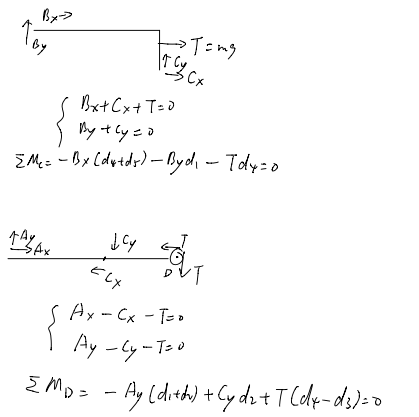 Bx→
↑By
→ T=mg
↑Cy
→Cx
Bx+Cx+T=0
By+Cy=0
ΣMc=-Bx(d4+d5)-Byd1-Td4=0
↑Ay
→Ax
↓Cy
←T
←Cx
D
↓T
Ax-Cx-T=0
Ay-Cy-T=0
ΣMD=-Ay(d1+d2)+Cyd2+T(d4-d3)=0